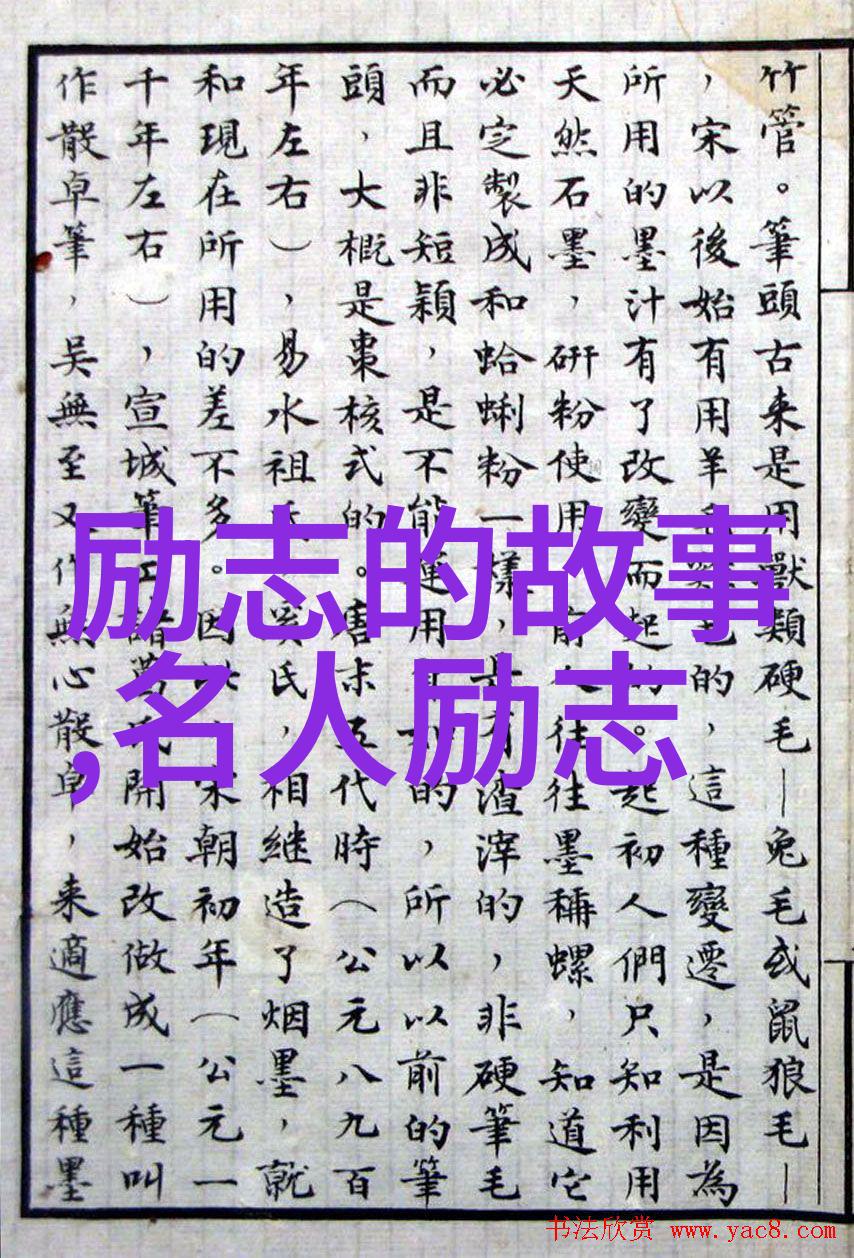 竹管。筆頭古来是用獸類硬毛—兔毛或鼠狼毛—
，宋以後始有用羊毛的，這種變遷，是因為
所用的墨汁有了改變而起的。起初人們只知利用
天然石墨，研粉使用，前人往往墨稱螺，知道它
必定製成和蛤蜊粉一樣，是有渣滓的，非硬筆毛
而且非短穎，是不能運用自如的，所以以前的筆
頭，大概是棗核式的。唐末五代時（公元八九百
年左右），易水祖氏奚氏，相継造了烟墨，就
和現在所用的差不多。因此，宋朝初年（公元一
千年左右），宣城筆工諸葛氏開始改做成一種叫
作散卓筆，吴無至又作無心散卓，来適應這種墨
励志的故事
,名人励志
书法欣赏 www.yac8.com